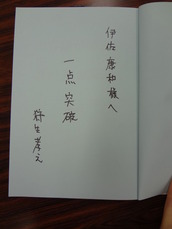 伊佐 康和 様へ
一点突破
狩生孝之